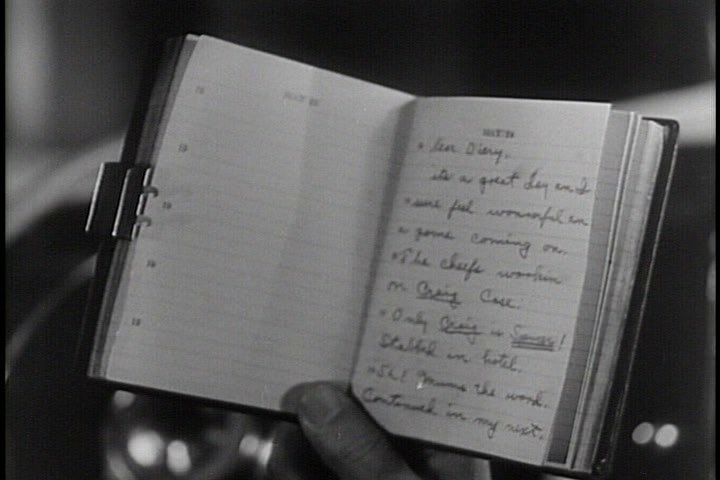 19
19
19
19
19
Dear Diery,
its a great Day an I
sure feel wonnerful an
a gome coming on.
The cheefs workin
on Craig Case.
Only Craig is
Stabbed in hotel.
Sh! Mums the word.
Continued in my next.